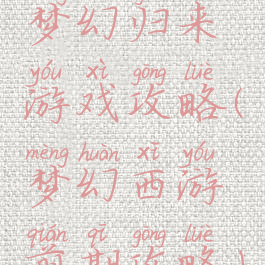 梦幻归来
yóu xì gōng lüè
游戏攻略(
mèng huàn xī yóu
梦幻西游
qián qī gōng lüè
前期攻略)